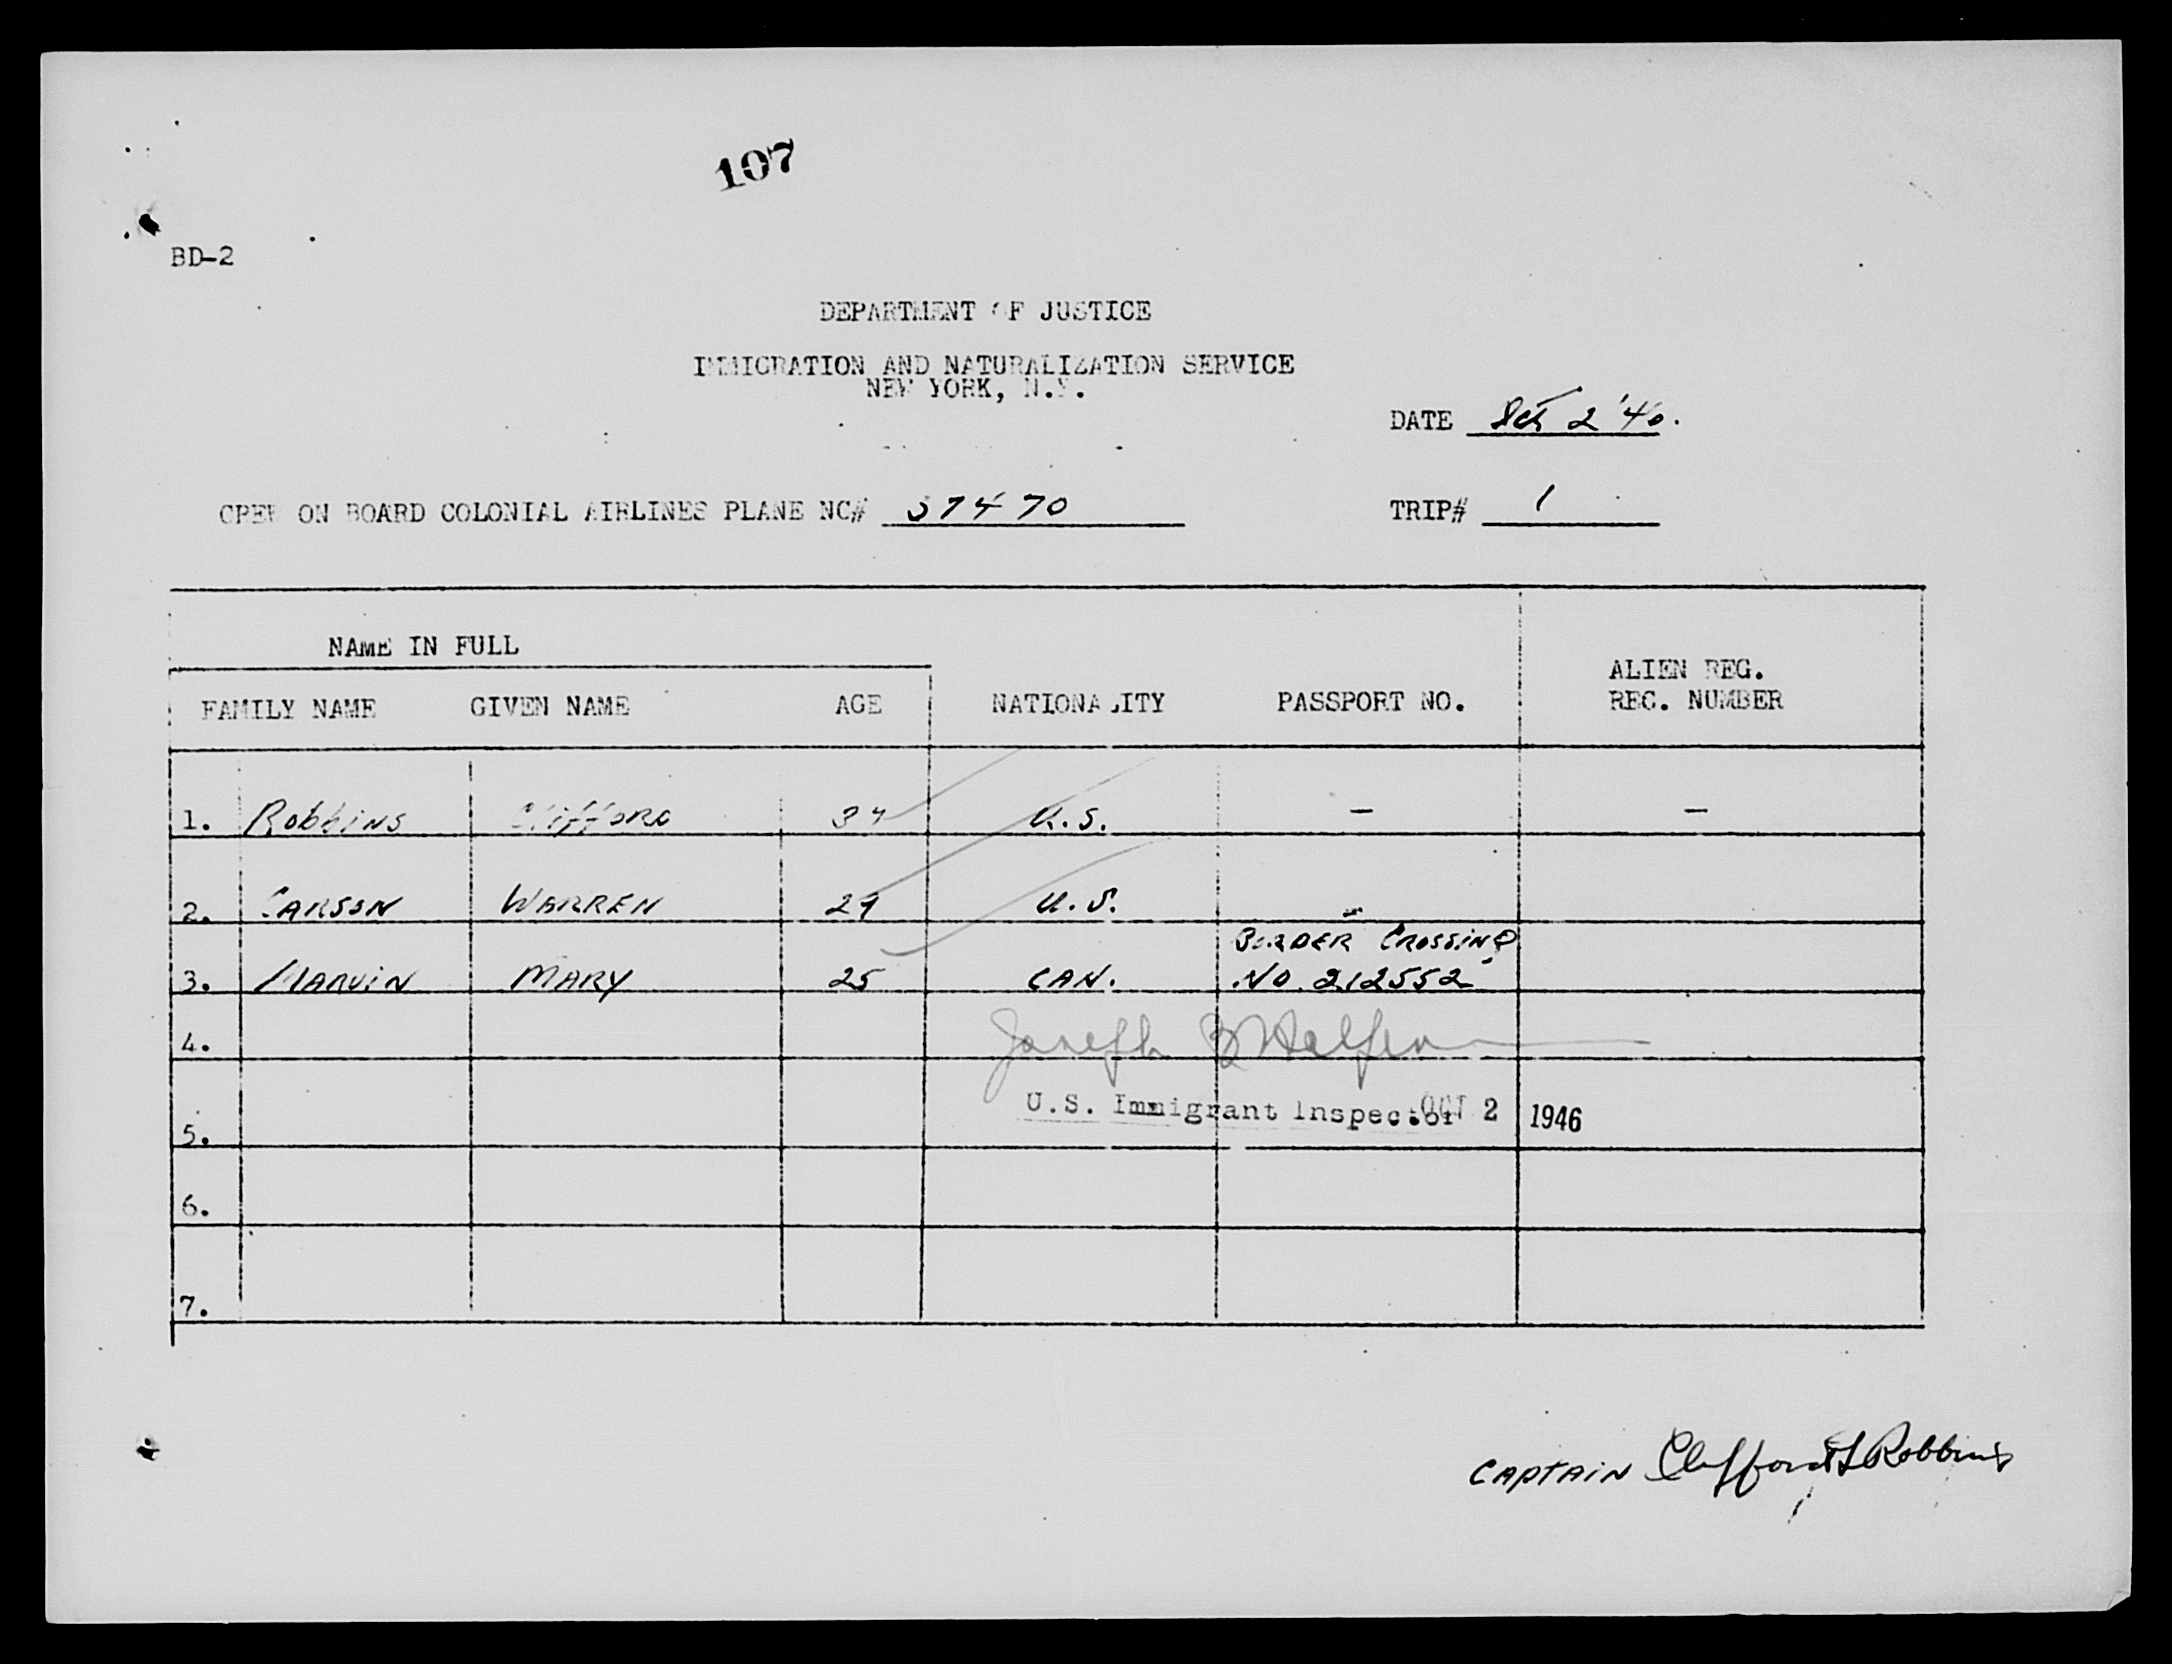 107
BD-2
DEPARTMENT OF JUSTICE
IMMIGRATION AND NATURALIZATION SERVICE
NEW YORK, N.Y.
DATE Oct 2 '46.
CREW ON BOARD COLONIAL AIRLINES PLANE NC# 37470
TRIP# 1
NAME IN FULL
FAMILY NAME GIVEN NAME AGE NATIONALITY PASSPORT NO. ALIEN REG. REC. NUMBER
1. Robbins Clifford U.S. – –
2. CARSON WARREN 29 U.S. –
BORDER CROSSING
3. MARVIN MARY 25 CAN. NO. 212552
4. Joseph
5. U.S. Immigrant Inspector OCT 2 1946
6.
7.
CAPTAIN Clifford L Robbins